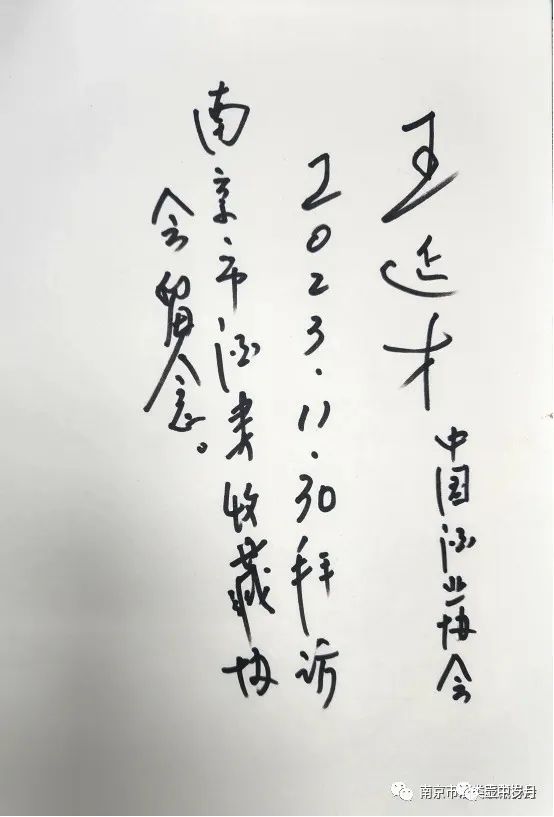 王延才
中国酒业协会
2023.11.30拜访
南京市酒类收藏协
会留念。
南京市